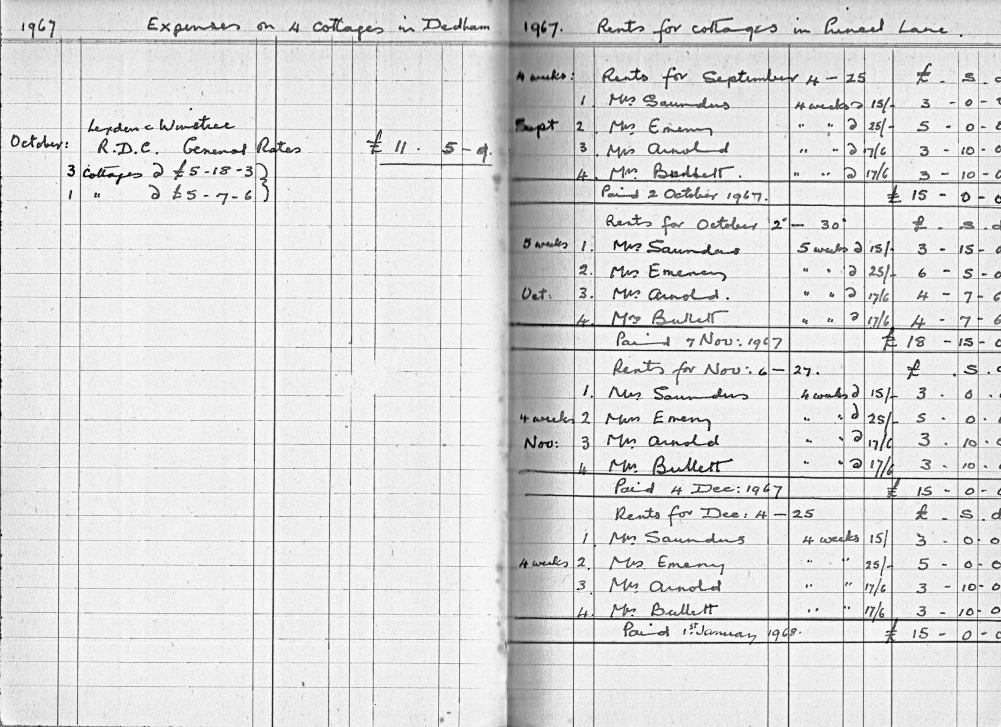 1967 Expenses on 4 cottages in Dedham
October: Lexden & Winstree
R.D.C. General Rates £ 11 . 5 - 9.
3 Cottages @ £5-18-3 }
1 " @ £5-7-6 }
1967. Rents for cottages in Lane.
4 weeks: Rents for September 4 - 25 £ . S .
1. Mrs Saunders 4 weeks @ 15/- 3 - 0 -
Sept 2 Mrs Emeny " " @ 25/- 5 - 0 - 0
3 Mrs Arnold " " @ 17/6 3 - 10 - 0
4. Mrs " " @ 17/6 3 - 10 - 0
Paid 2 October 1967. £ 15 - 0 - 0
Rents for October 2 - 30 £ . S . d
5 weeks 1. Mrs Saunders 5 weeks @ 15/- 3 - 15 - 0
2. Mrs Emeny " " @ 25/- 6 - 5 - 0
Oct: 3. Mrs Arnold. " " @ 17/6 4 - 7 - 6
4. Mrs Bullett " " @ 17/6 4 - 7 - 6
Paid 7 Nov: 1967 £ 18 - 15 - 0
Rents for Nov: 6 - 27. £ . S .
1. Mrs Saunders 4 weeks @ 15/- 3 . 0 .
4 weeks 2 Mrs Emeny " " @ 25/- 5 - 0 .
Nov: 3 Mrs Arnold " " @ 17/6 3 . 10 .
4 Mrs Bullett " " @ 17/6 3 . 10 .
Paid 4 Dec: 1967 £ 15 - 0 -
Rents for Dec: 4 - 25 £ . S . d
1. Mrs Saunders 4 weeks 15/ 3 - 0 - 0
4 weeks 2. Mrs Emeny " " 25/- 5 - 0 - 0
3. Mrs Arnold " " 17/6 3 - 10 - 0
4. Mrs Bullett " " 17/6 3 - 10 - 0
Paid 1st January 1968. £ 15 - 0 - 0